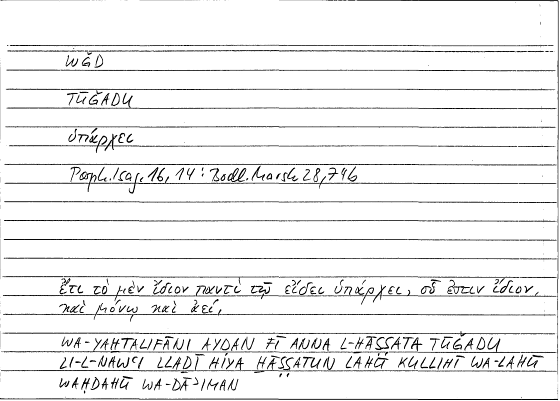 WǦD
TŪǦADU
ὑπάρχει
Porph. Isag. 16, 14 : Bodl. Marsh 28, 746
Ἔτι τὸ μὲν ἴδιον παντὶ τῷ εἴδει ὑπάρχει, οὗ ἐστιν ἴδιον,
καὶ μόνῳ καὶ ἀεί,
WA-YAḪTALIFĀNI AYḌAN FĪ ANNA L-ḪĀṢṢATA TŪǦADU
LI-L-NAWʿI LLAḎĪ HIYA ḪĀṢṢATUN LAHŪ KULLIHĪ WA-LAHŪ
WAḤDAHŪ WA-DĀʾIMAN